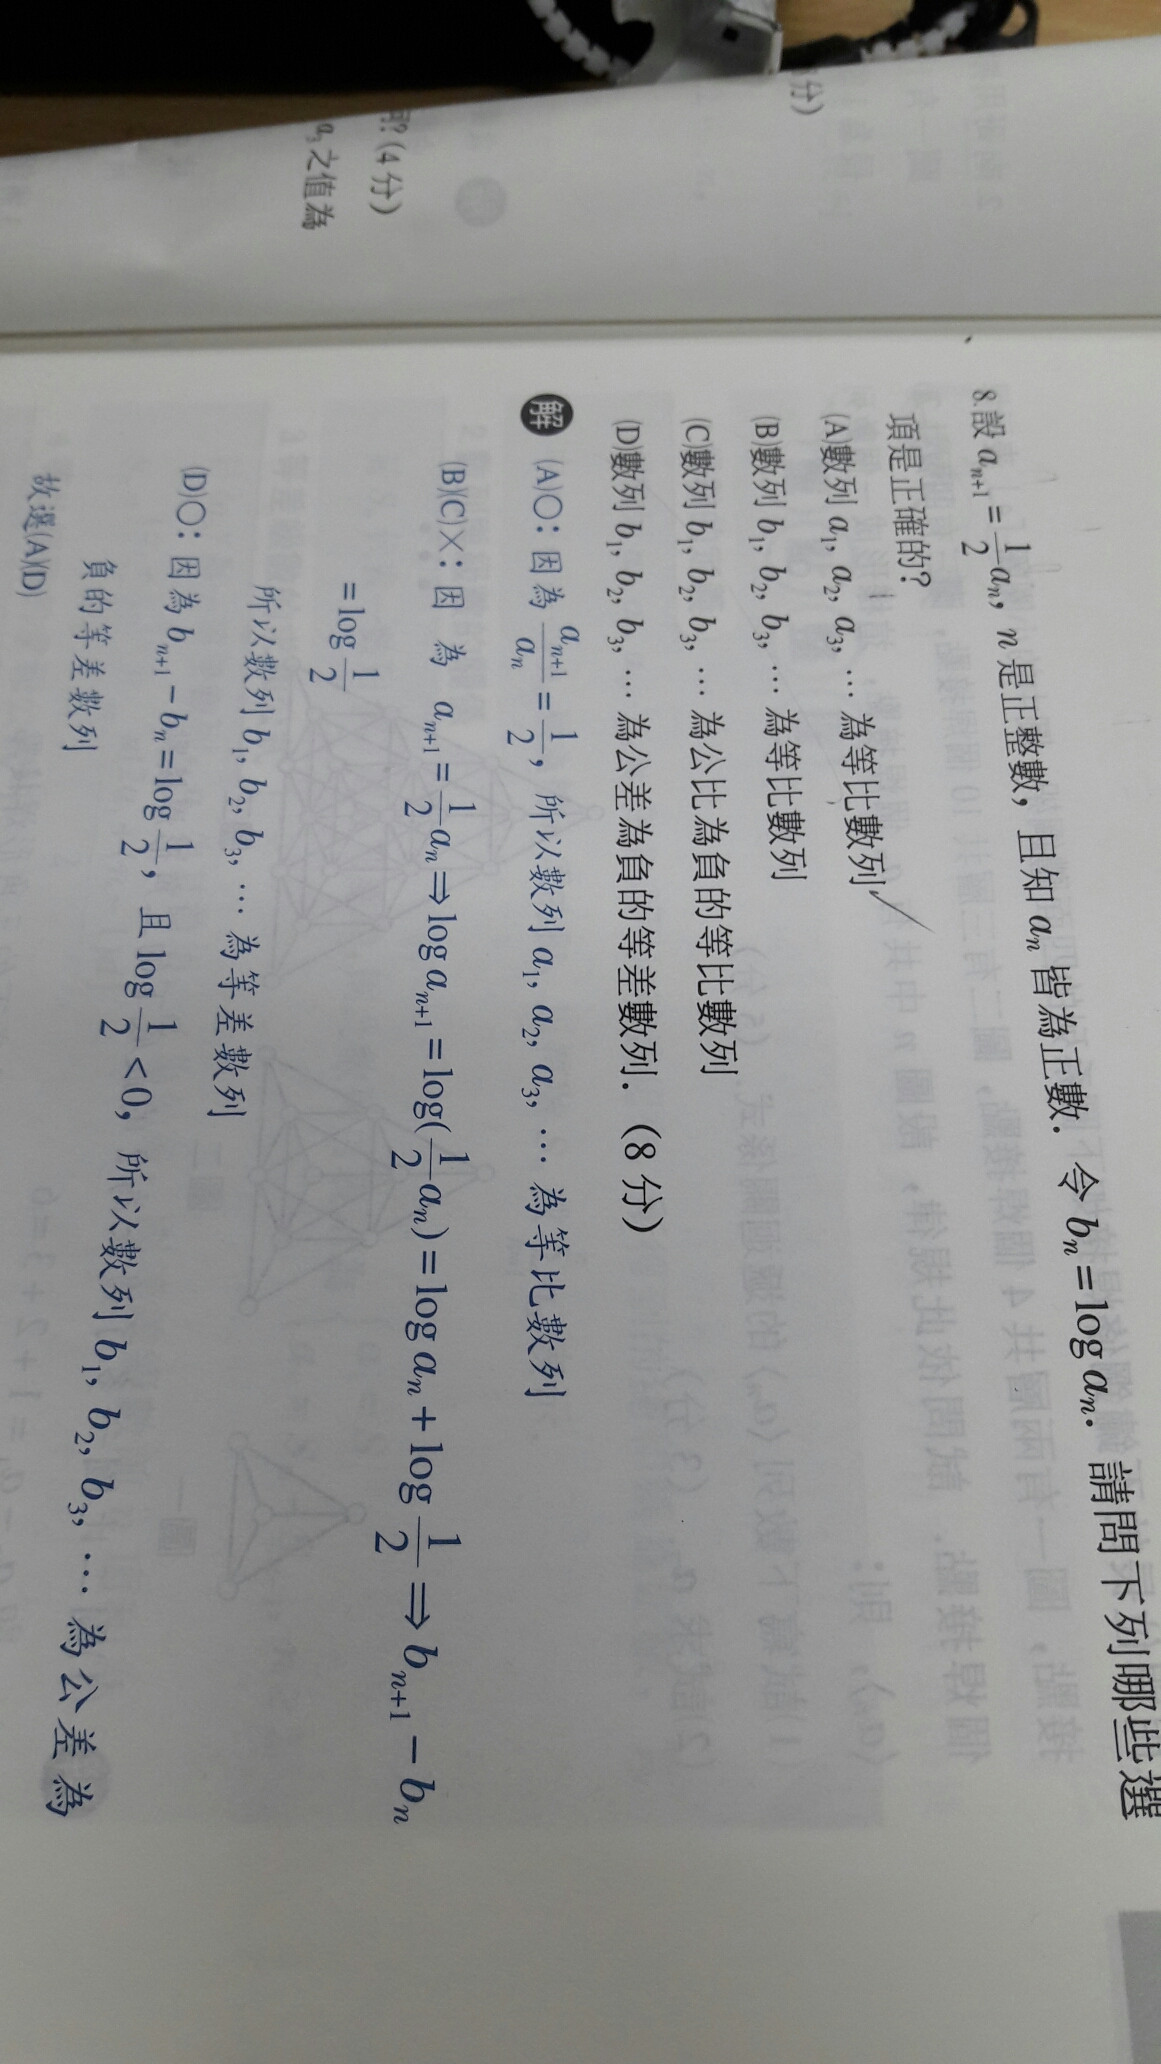 分)
何?(4分)
a₃之值為
8.設 aₙ₊₁=1/2aₙ, n是正整數, 且知 aₙ 皆為正數. 令 bₙ=log aₙ. 請問下列哪些選
項是正確的?
(A)數列 a₁, a₂, a₃, … 為等比數列✓
(B)數列 b₁, b₂, b₃, … 為等比數列
(C)數列 b₁, b₂, b₃, … 為公比為負的等比數列
(D)數列 b₁, b₂, b₃, … 為公差為負的等差數列. (8分)
解 (A)○: 因為 aₙ₊₁/aₙ=1/2, 所以數列 a₁, a₂, a₃, … 為等比數列
(B)(C)×: 因為 aₙ₊₁=1/2aₙ⇒log aₙ₊₁=log(1/2aₙ)=log aₙ+log1/2⇒bₙ₊₁-bₙ
=log1/2
所以數列 b₁, b₂, b₃, … 為等差數列
(D)○: 因為 bₙ₊₁-bₙ=log1/2, 且 log1/2<0, 所以數列 b₁, b₂, b₃, … 為公差為
負的等差數列
故選(A)(D)